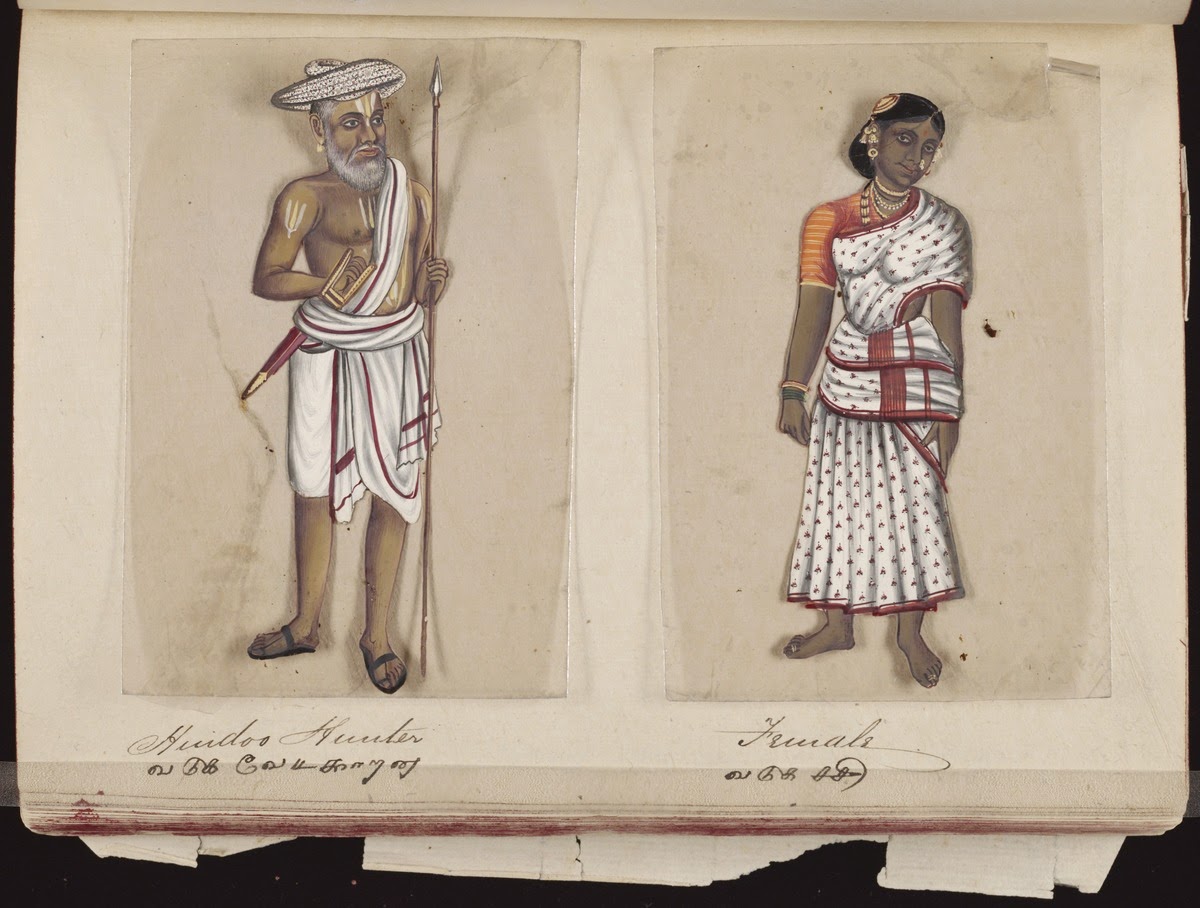 Hindoo Hunter
வடுக வேடகாறன்
Female
வடுக சசி